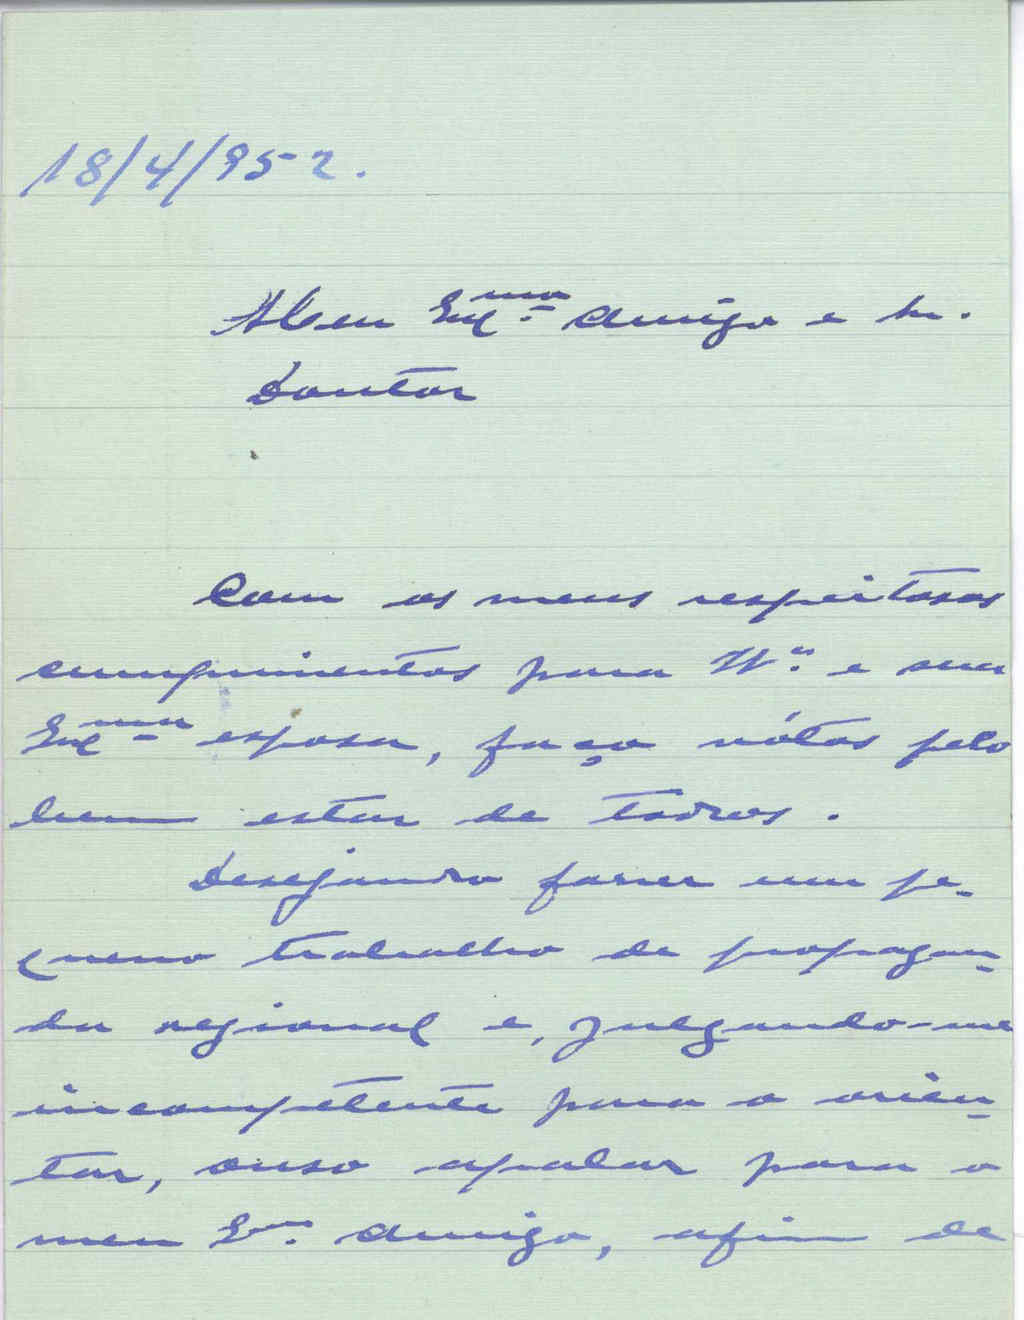 18/4/952.
Meu Exmo. Amigo e Sr.
Doutor
Com os meus respeitosos
cumprimentos para V. e sua
Exma esposa, faço vótos pelo
bem estar de todos.
Desejando fazer um pe-
queno trabalho de propagan-
da regional e, julgando-me
incompetente para o orien-
tar, ouso apelar para o
meu Exmo. Amigo, afim de